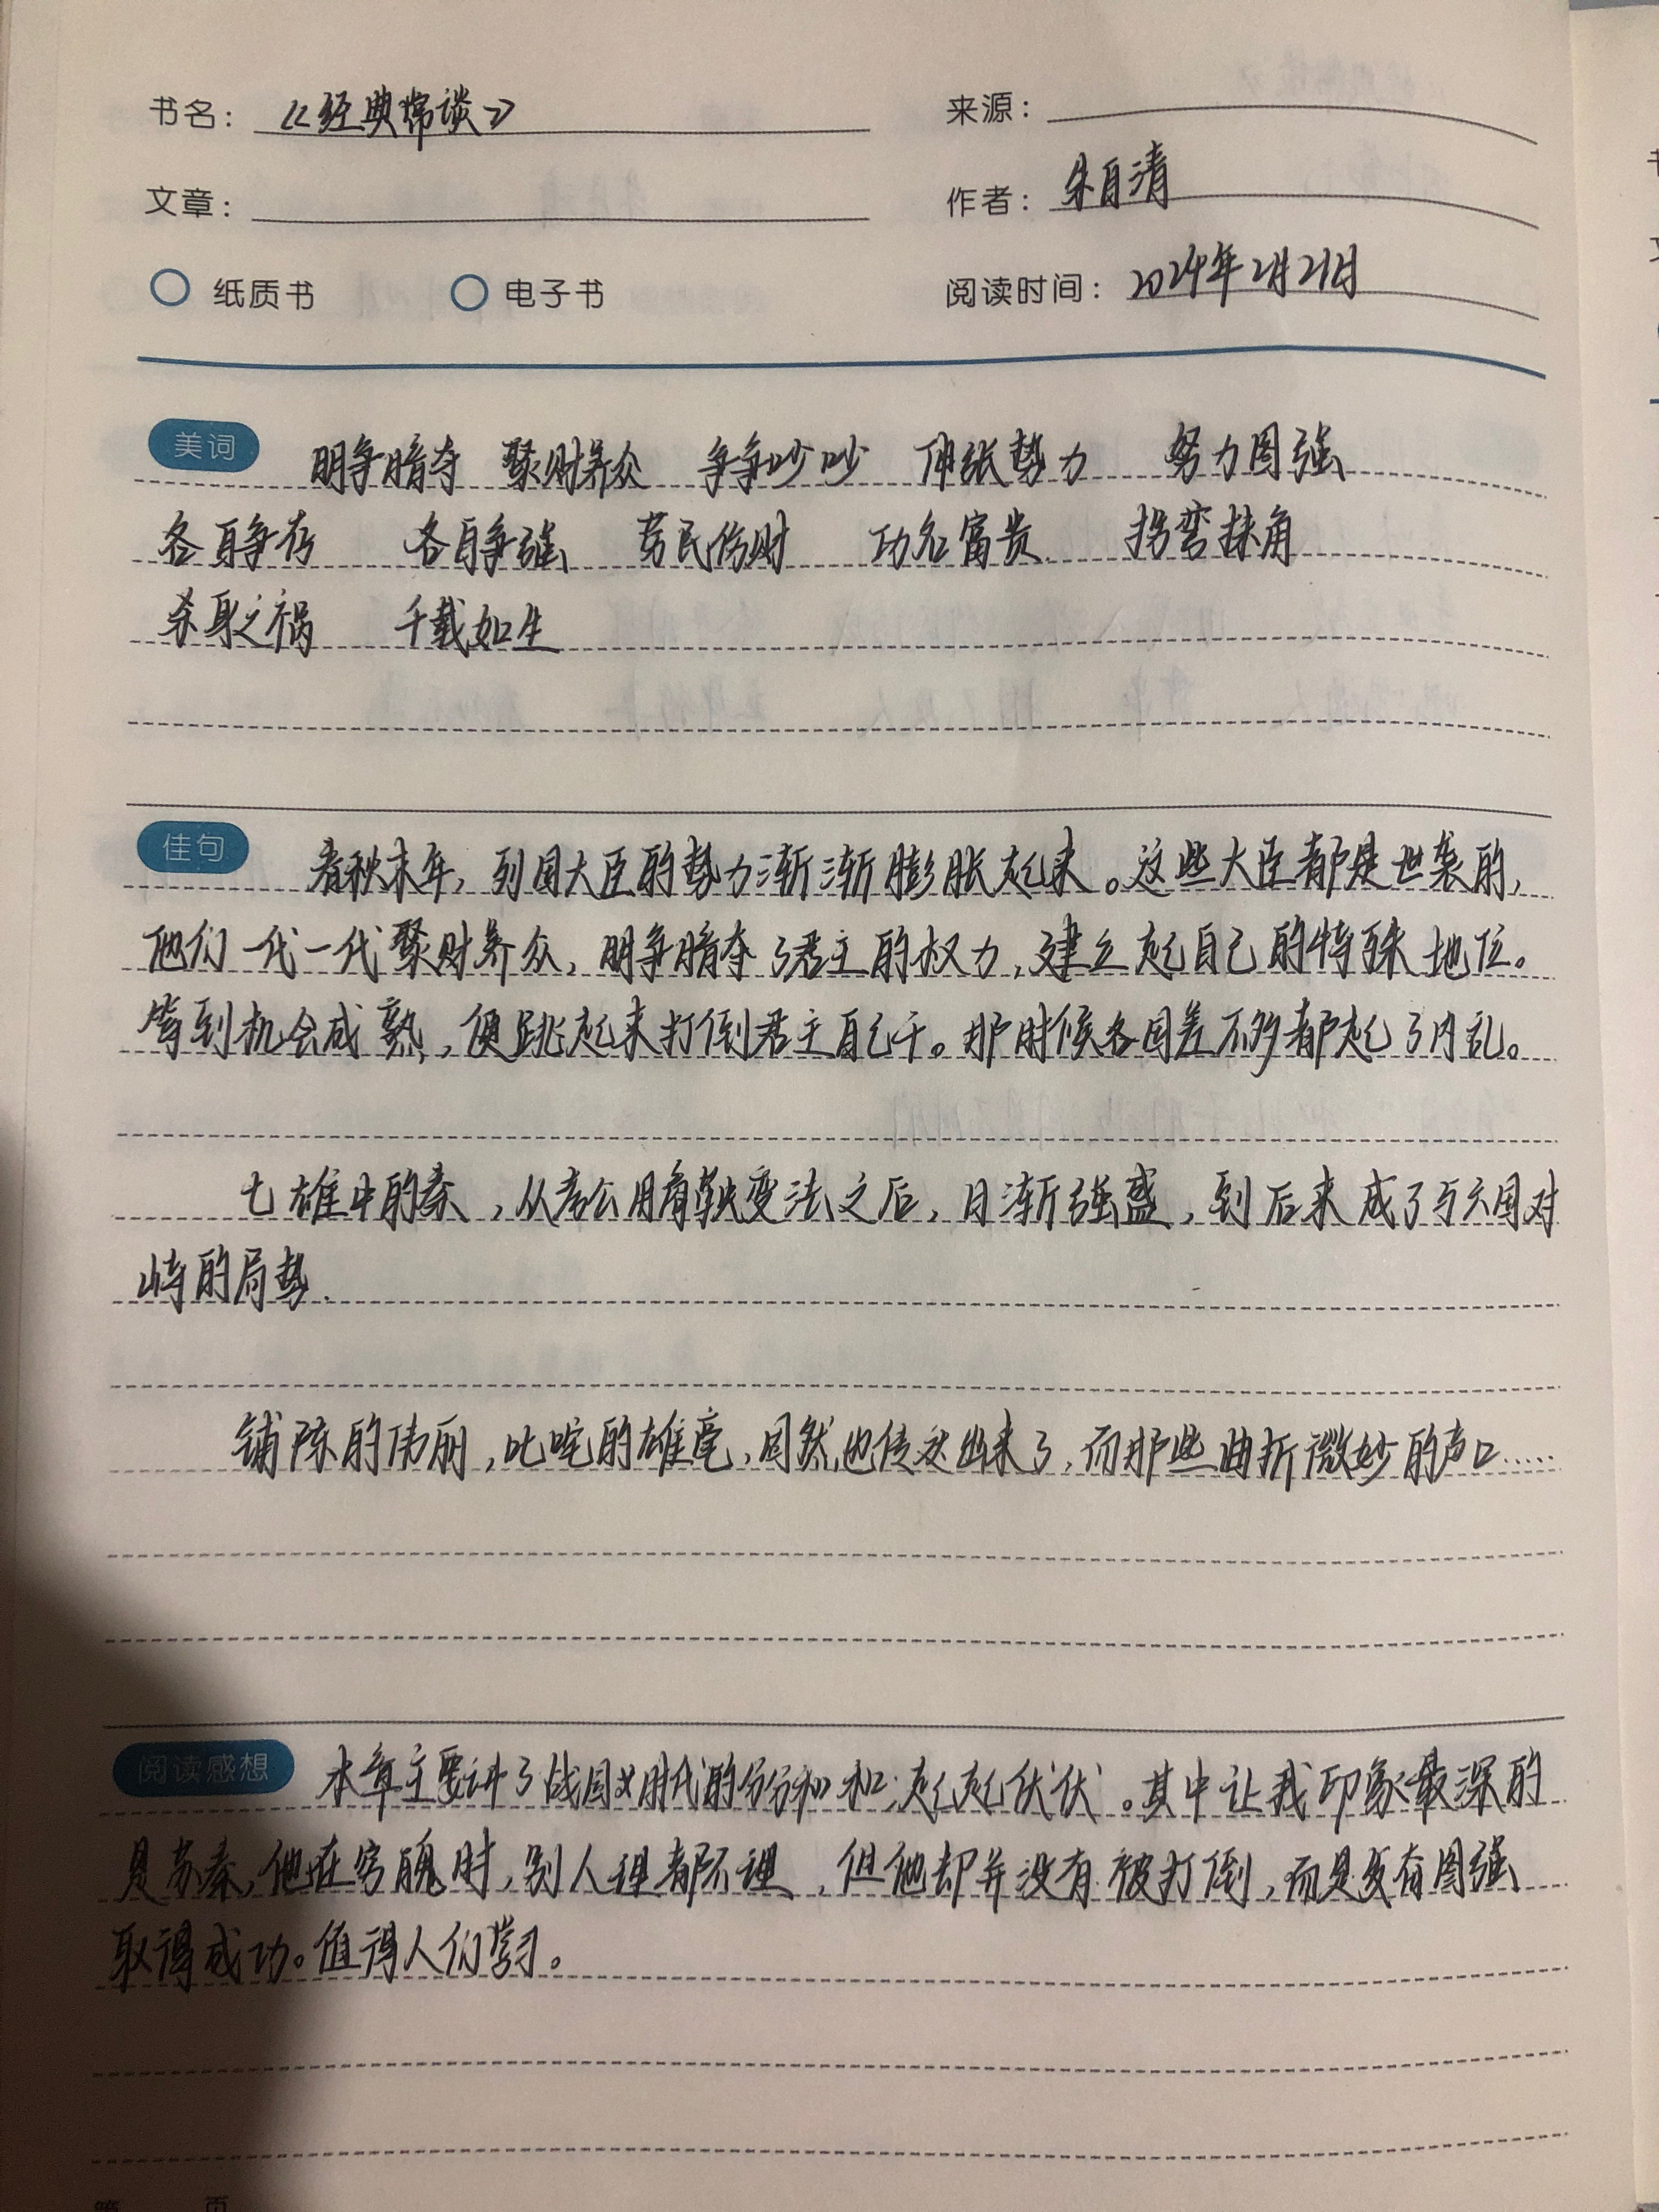 书名： 《经典常谈》 来源：
文章： 作者： 朱自清
纸质书 电子书 阅读时间： 2024年2月21日
美词 明争暗夺 聚财养众 争争吵吵 伸张势力 努力图强
各自争存 各自争强 劳民伤财 功名富贵 拐弯抹角
杀身之祸 千载如生
佳句 春秋末年，列国大臣的势力渐渐膨胀起来。这些大臣都是世袭的，
他们一代一代聚财养众，明争暗夺了君主的权力，建立起自己的特殊地位。
等到机会成熟，便跳起来打倒君主自己干。那时候各国差不多都起了内乱。
七雄中的秦，从孝公用商鞅变法之后，日渐强盛，到后来成了与六国对
峙的局势.
铺陈的伟丽，叱咤的雄豪，固然也传达出来了，而那些曲折微妙的声口……
阅读感想 本章主要讲了战国时代的分分和和，起起伏伏。其中让我印象最深的
是苏秦，他在穷魄时，别人理都不理，但他却并没有被打倒，而是发奋图强
取得成功。值得人们学习。
第 页